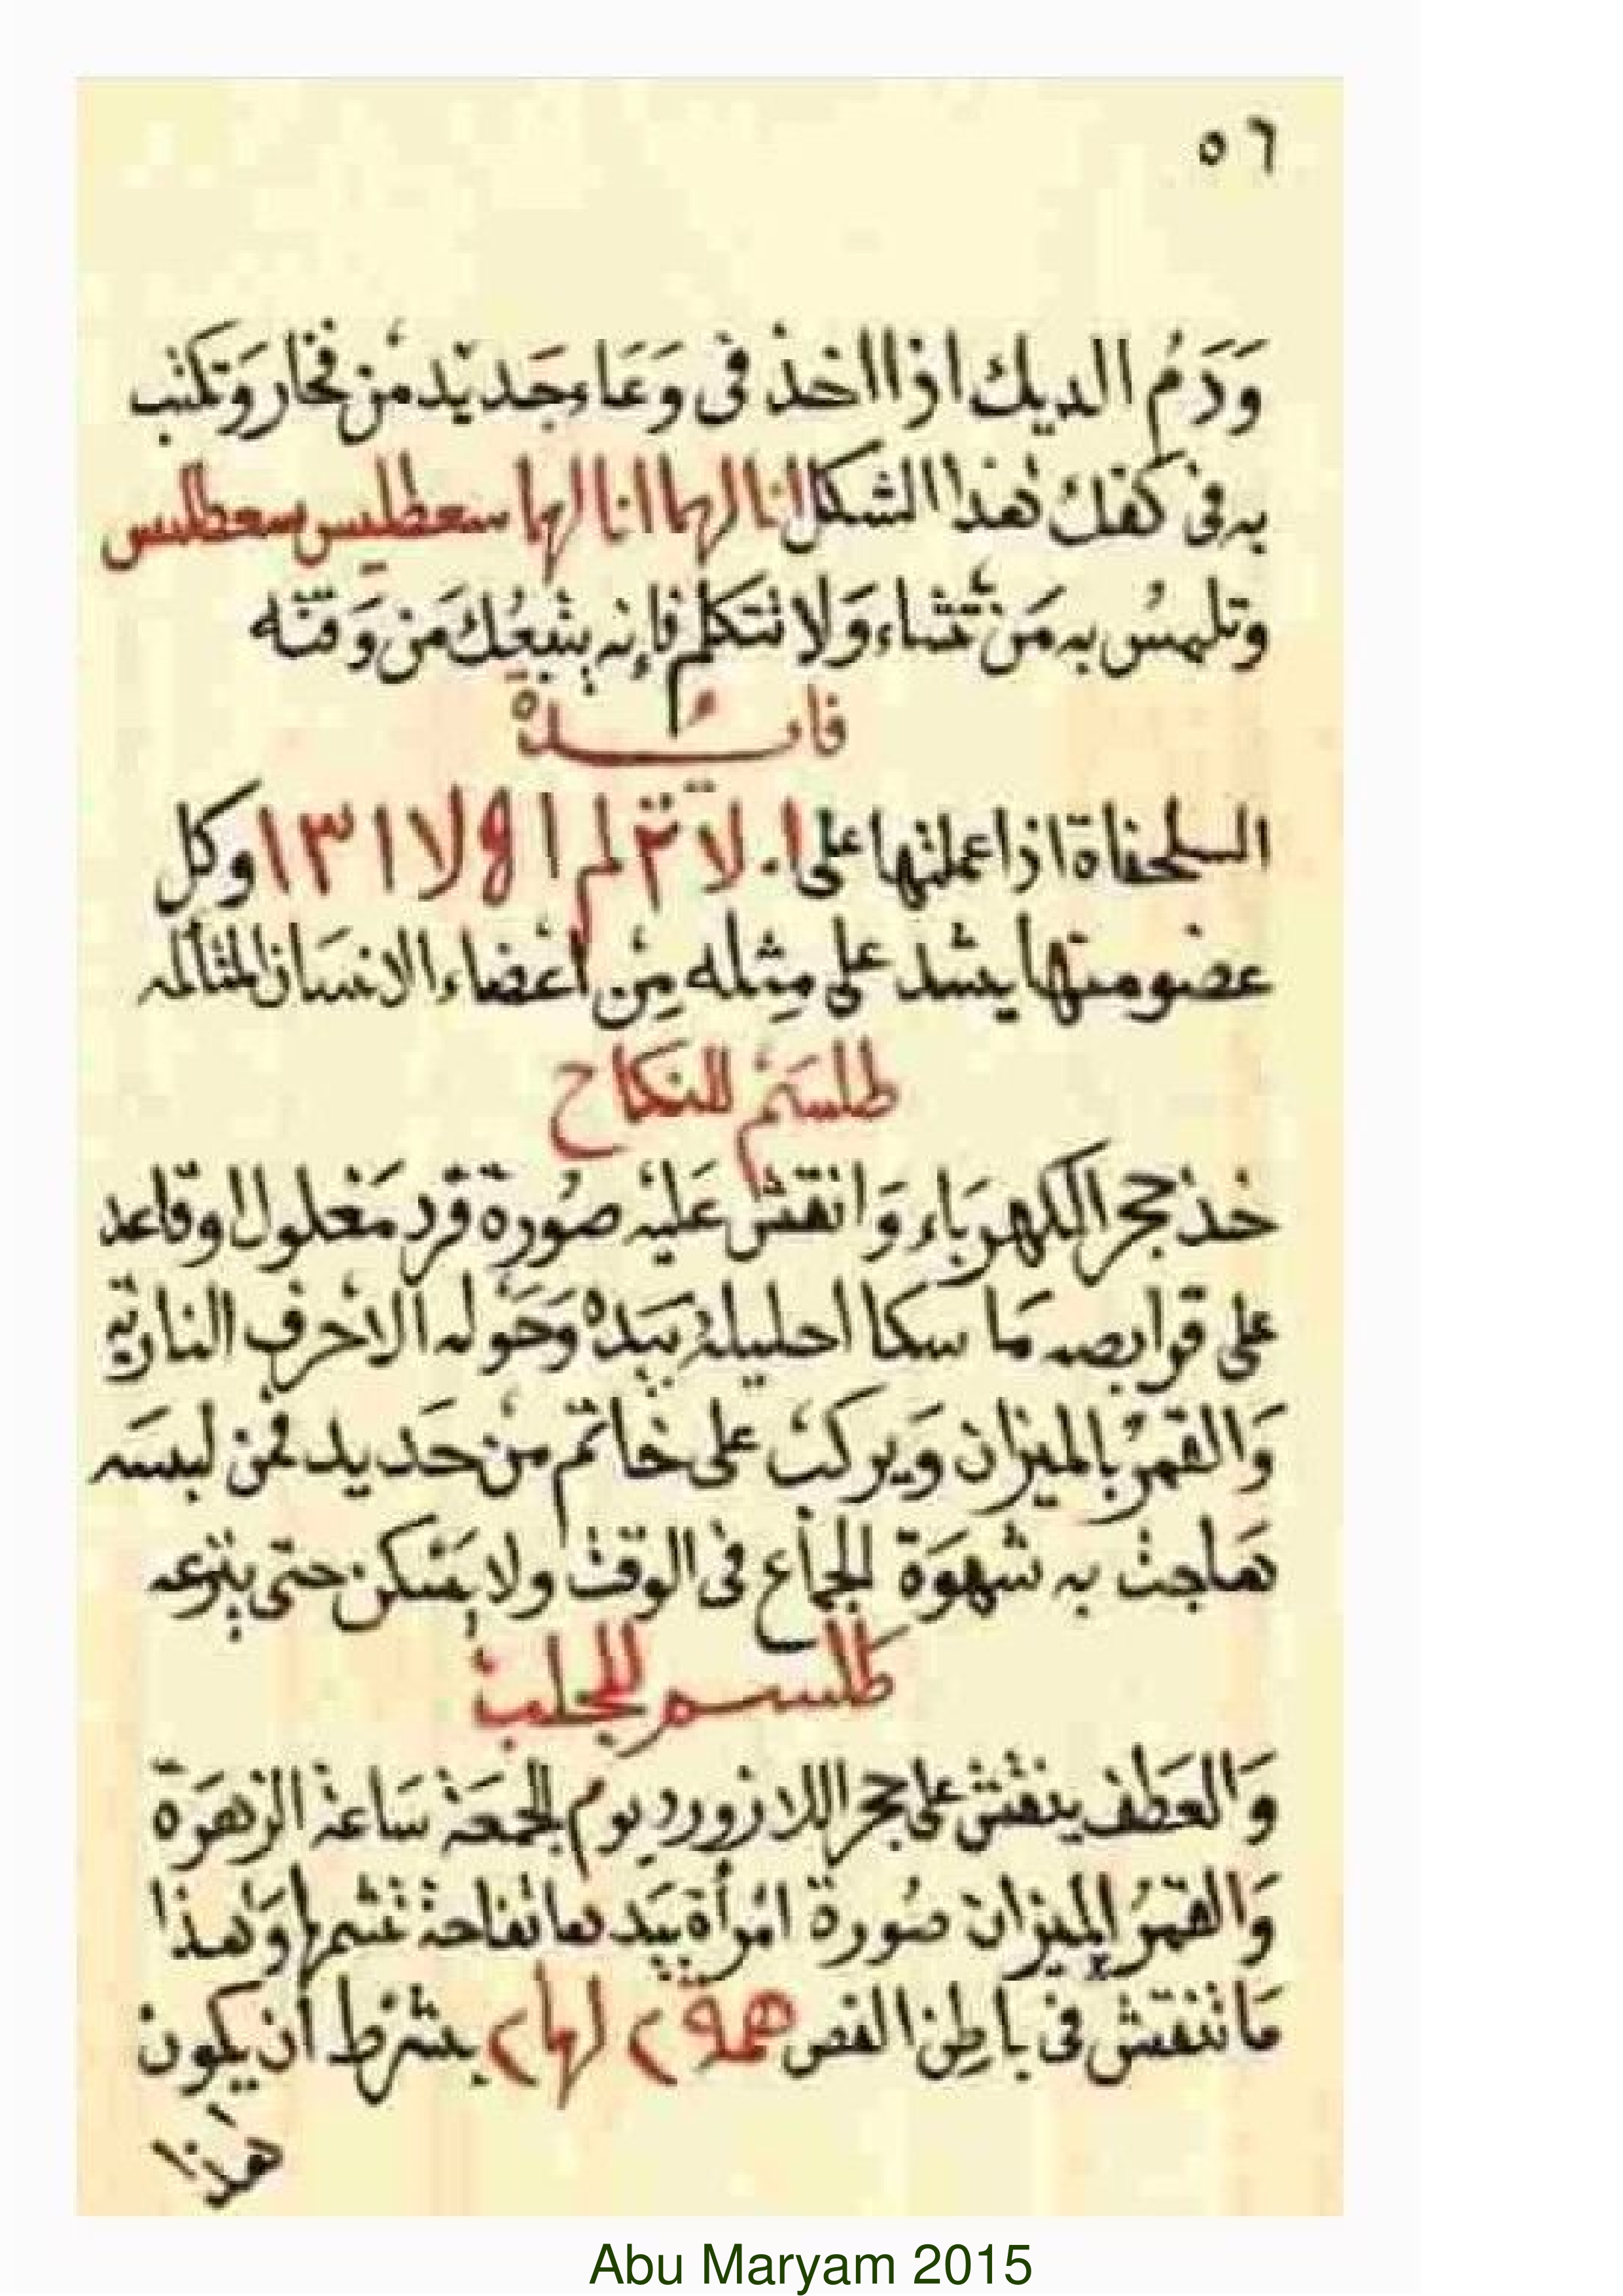 ٥٦
وَدَمُ الديك اذا اخذ فى وَعَاءِ جَديْد منْ فخار وَتكتب
به فى كفك هٰذا الشكل انا لهاا نا لها سعطيس سعطيس
وتلمسُ به مَنْ تشاء وَلا تتكلم فإنه يتبعُك مَن وَقته
فائدة
السلحفاة اذا عملتها على لا لم ا لا ا ٣ ا وكل
عضو منها يشد على مِثله مِنْ اعْضاء الانسَان المثالله
طلسَمْ للنكاح
خذ حجر الكهرَباء وَانقش عَليْه صُورة قرد مَغلول وقاعد
على قرابصه مَا سكا احليلهْ بيَده وَحَوْله الاحْرف الناريَّة
وَالقمرُ بالميزان وَيركبْ على خَاتم منْ حَديد فمن لبسَه
هَاجت به شهوَة الجماع فى الوقت ولا يَسْكن حتى ينزعه
طلسم للجلب
وَالعَطف ينقش على حجر اللازورد يوم الجمعَة سَاعة الزهرَة
وَالقمرُ بالميزان صُورة امْرأة بيَدها تفاحة تشمها وَهذا
مَا تنقش فى باطِن الفص لها بشرْط أن يكون
هذا
Abu Maryam 2015